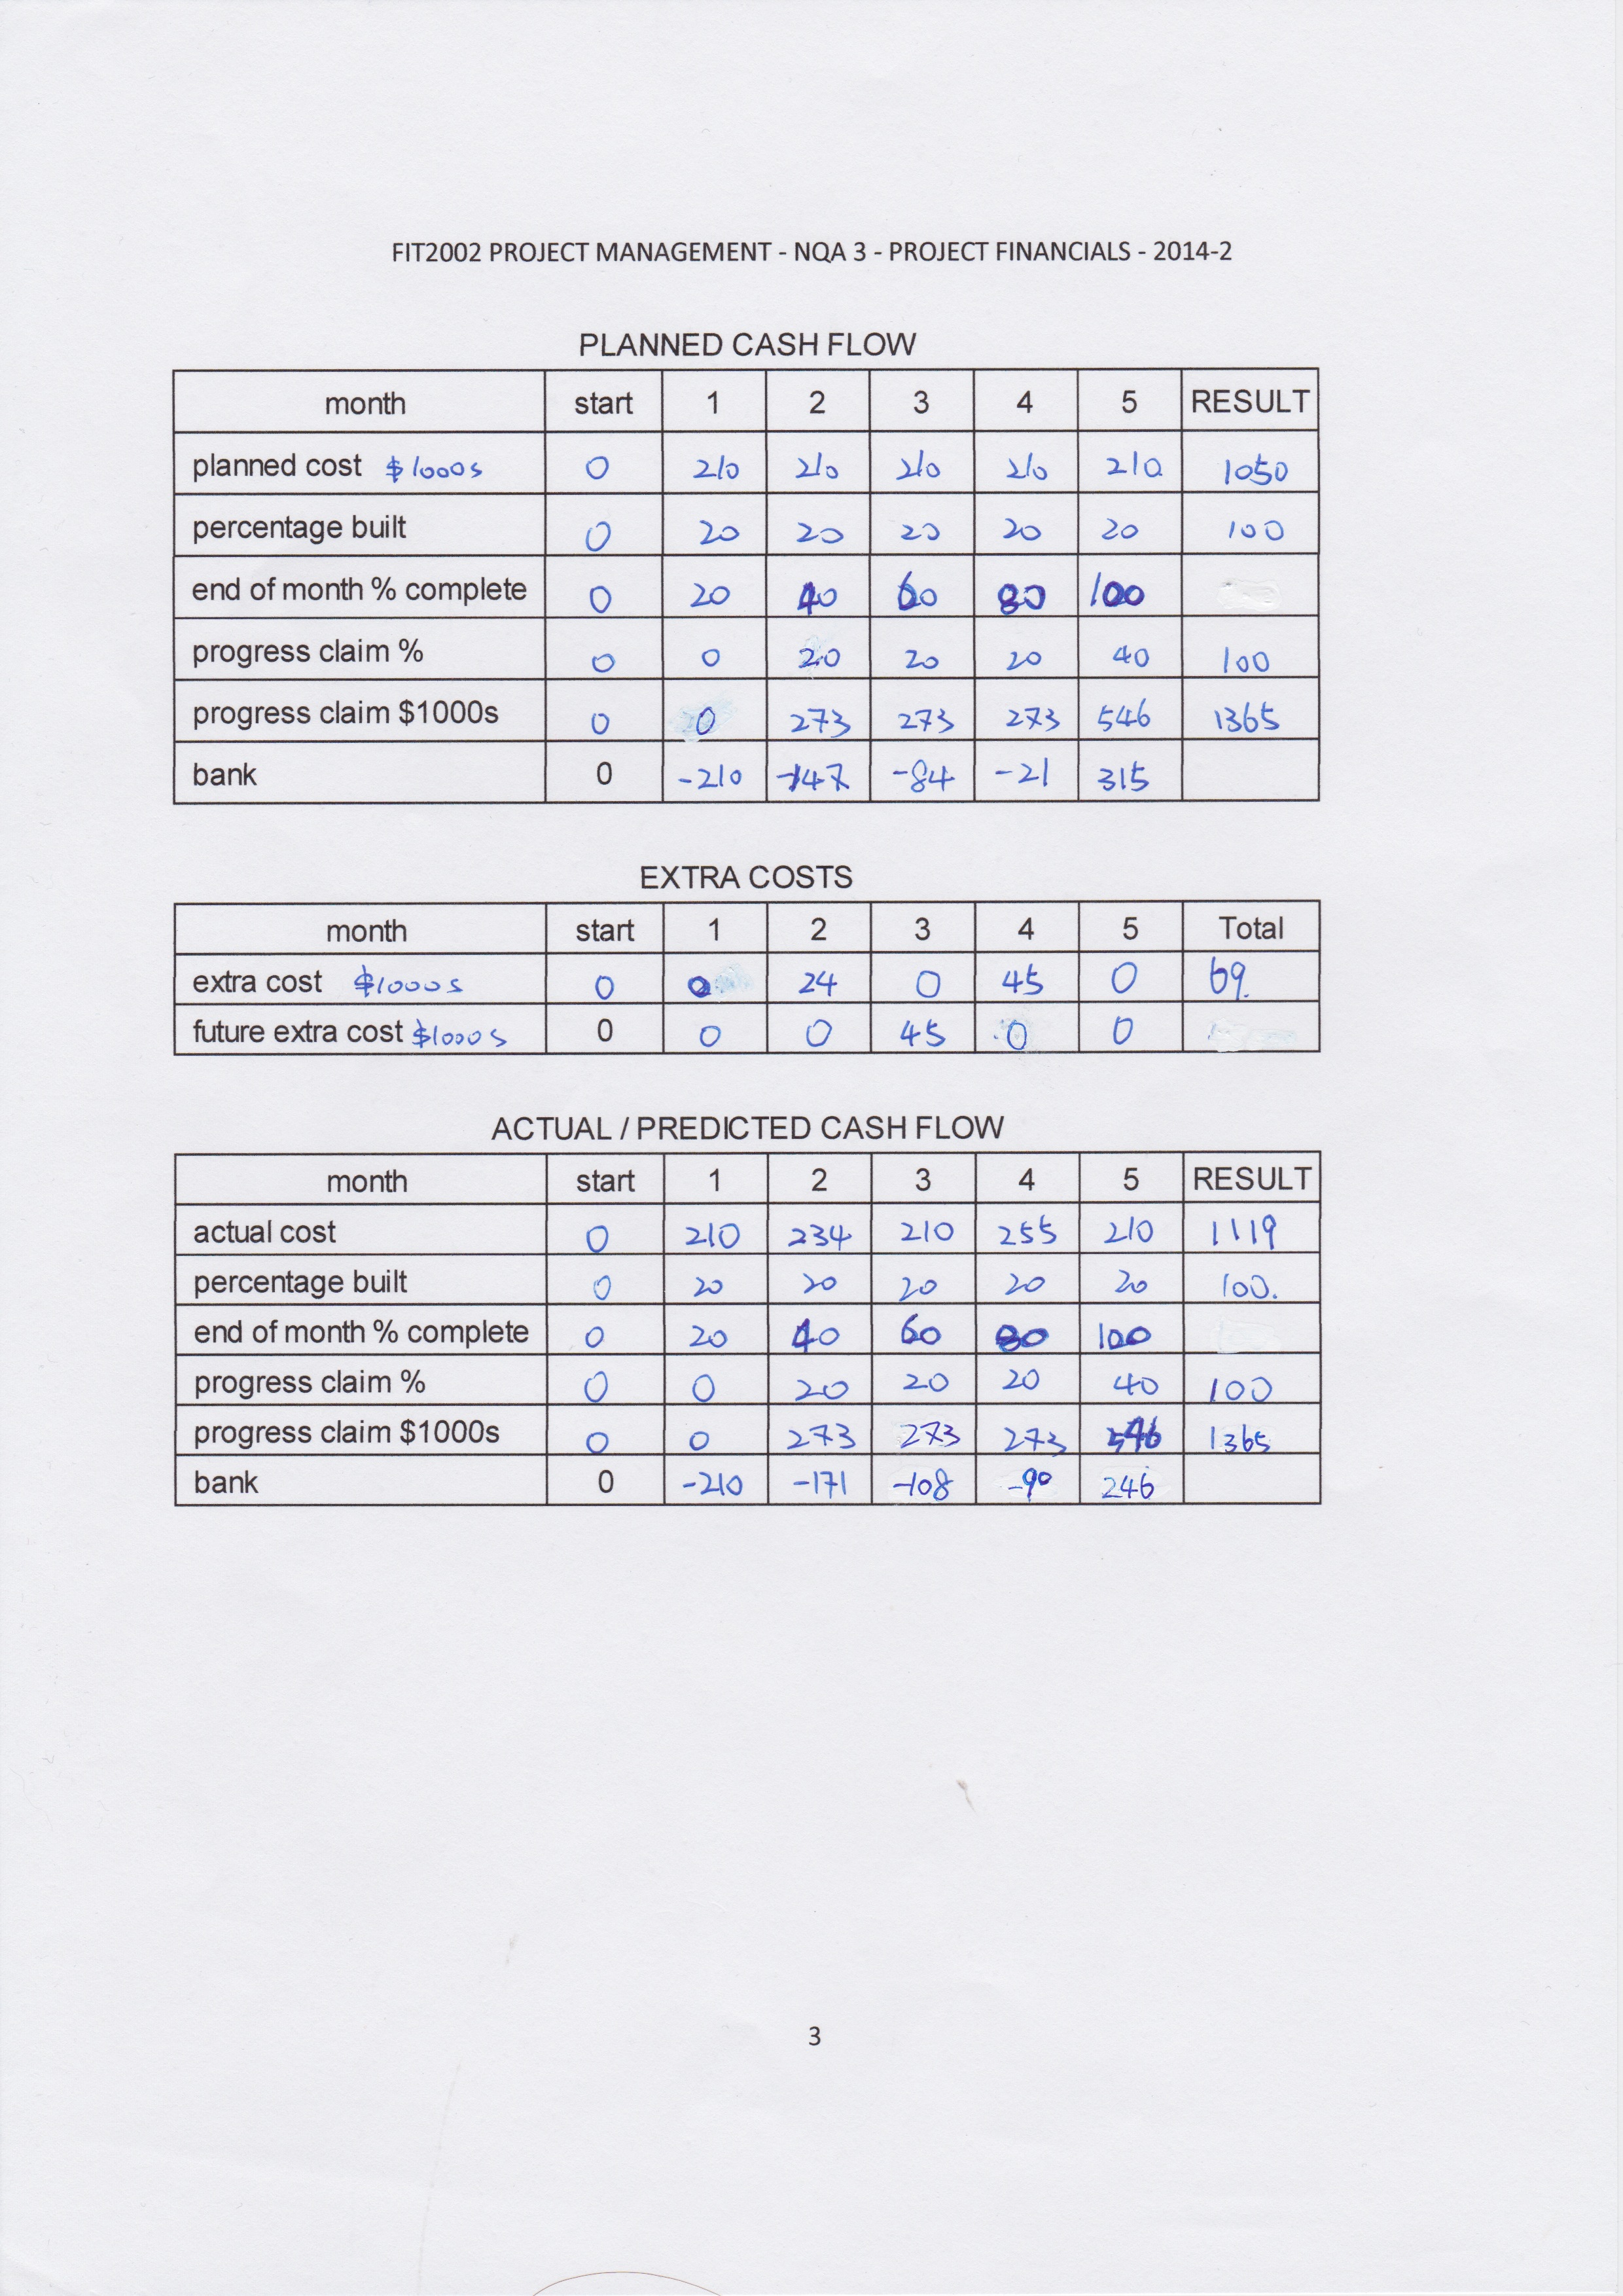 FIT2002 PROJECT MANAGEMENT - NQA 3 - PROJECT FINANCIALS - 2014-2
PLANNED CASH FLOW
month start 1 2 3 4 5 RESULT
planned cost $1000s 0 210 210 210 210 210 1050
percentage built 0 20 20 20 20 20 100
end of month % complete 0 20 40 60 80 100
progress claim % 0 0 20 20 20 40 100
progress claim $1000s 0 0 273 273 273 546 1365
bank 0 -210 -147 -84 -21 315
EXTRA COSTS
month start 1 2 3 4 5 Total
extra cost $1000s 0 0 24 0 45 0 69.
future extra cost $1000s 0 0 0 45 0 0
ACTUAL / PREDICTED CASH FLOW
month start 1 2 3 4 5 RESULT
actual cost 0 210 234 210 255 210 1119
percentage built 0 20 20 20 20 20 100.
end of month % complete 0 20 40 60 80 100
progress claim % 0 0 20 20 20 40 100
progress claim $1000s 0 0 273 273 273 546 1365
bank 0 -210 -171 -108 -90 246
3